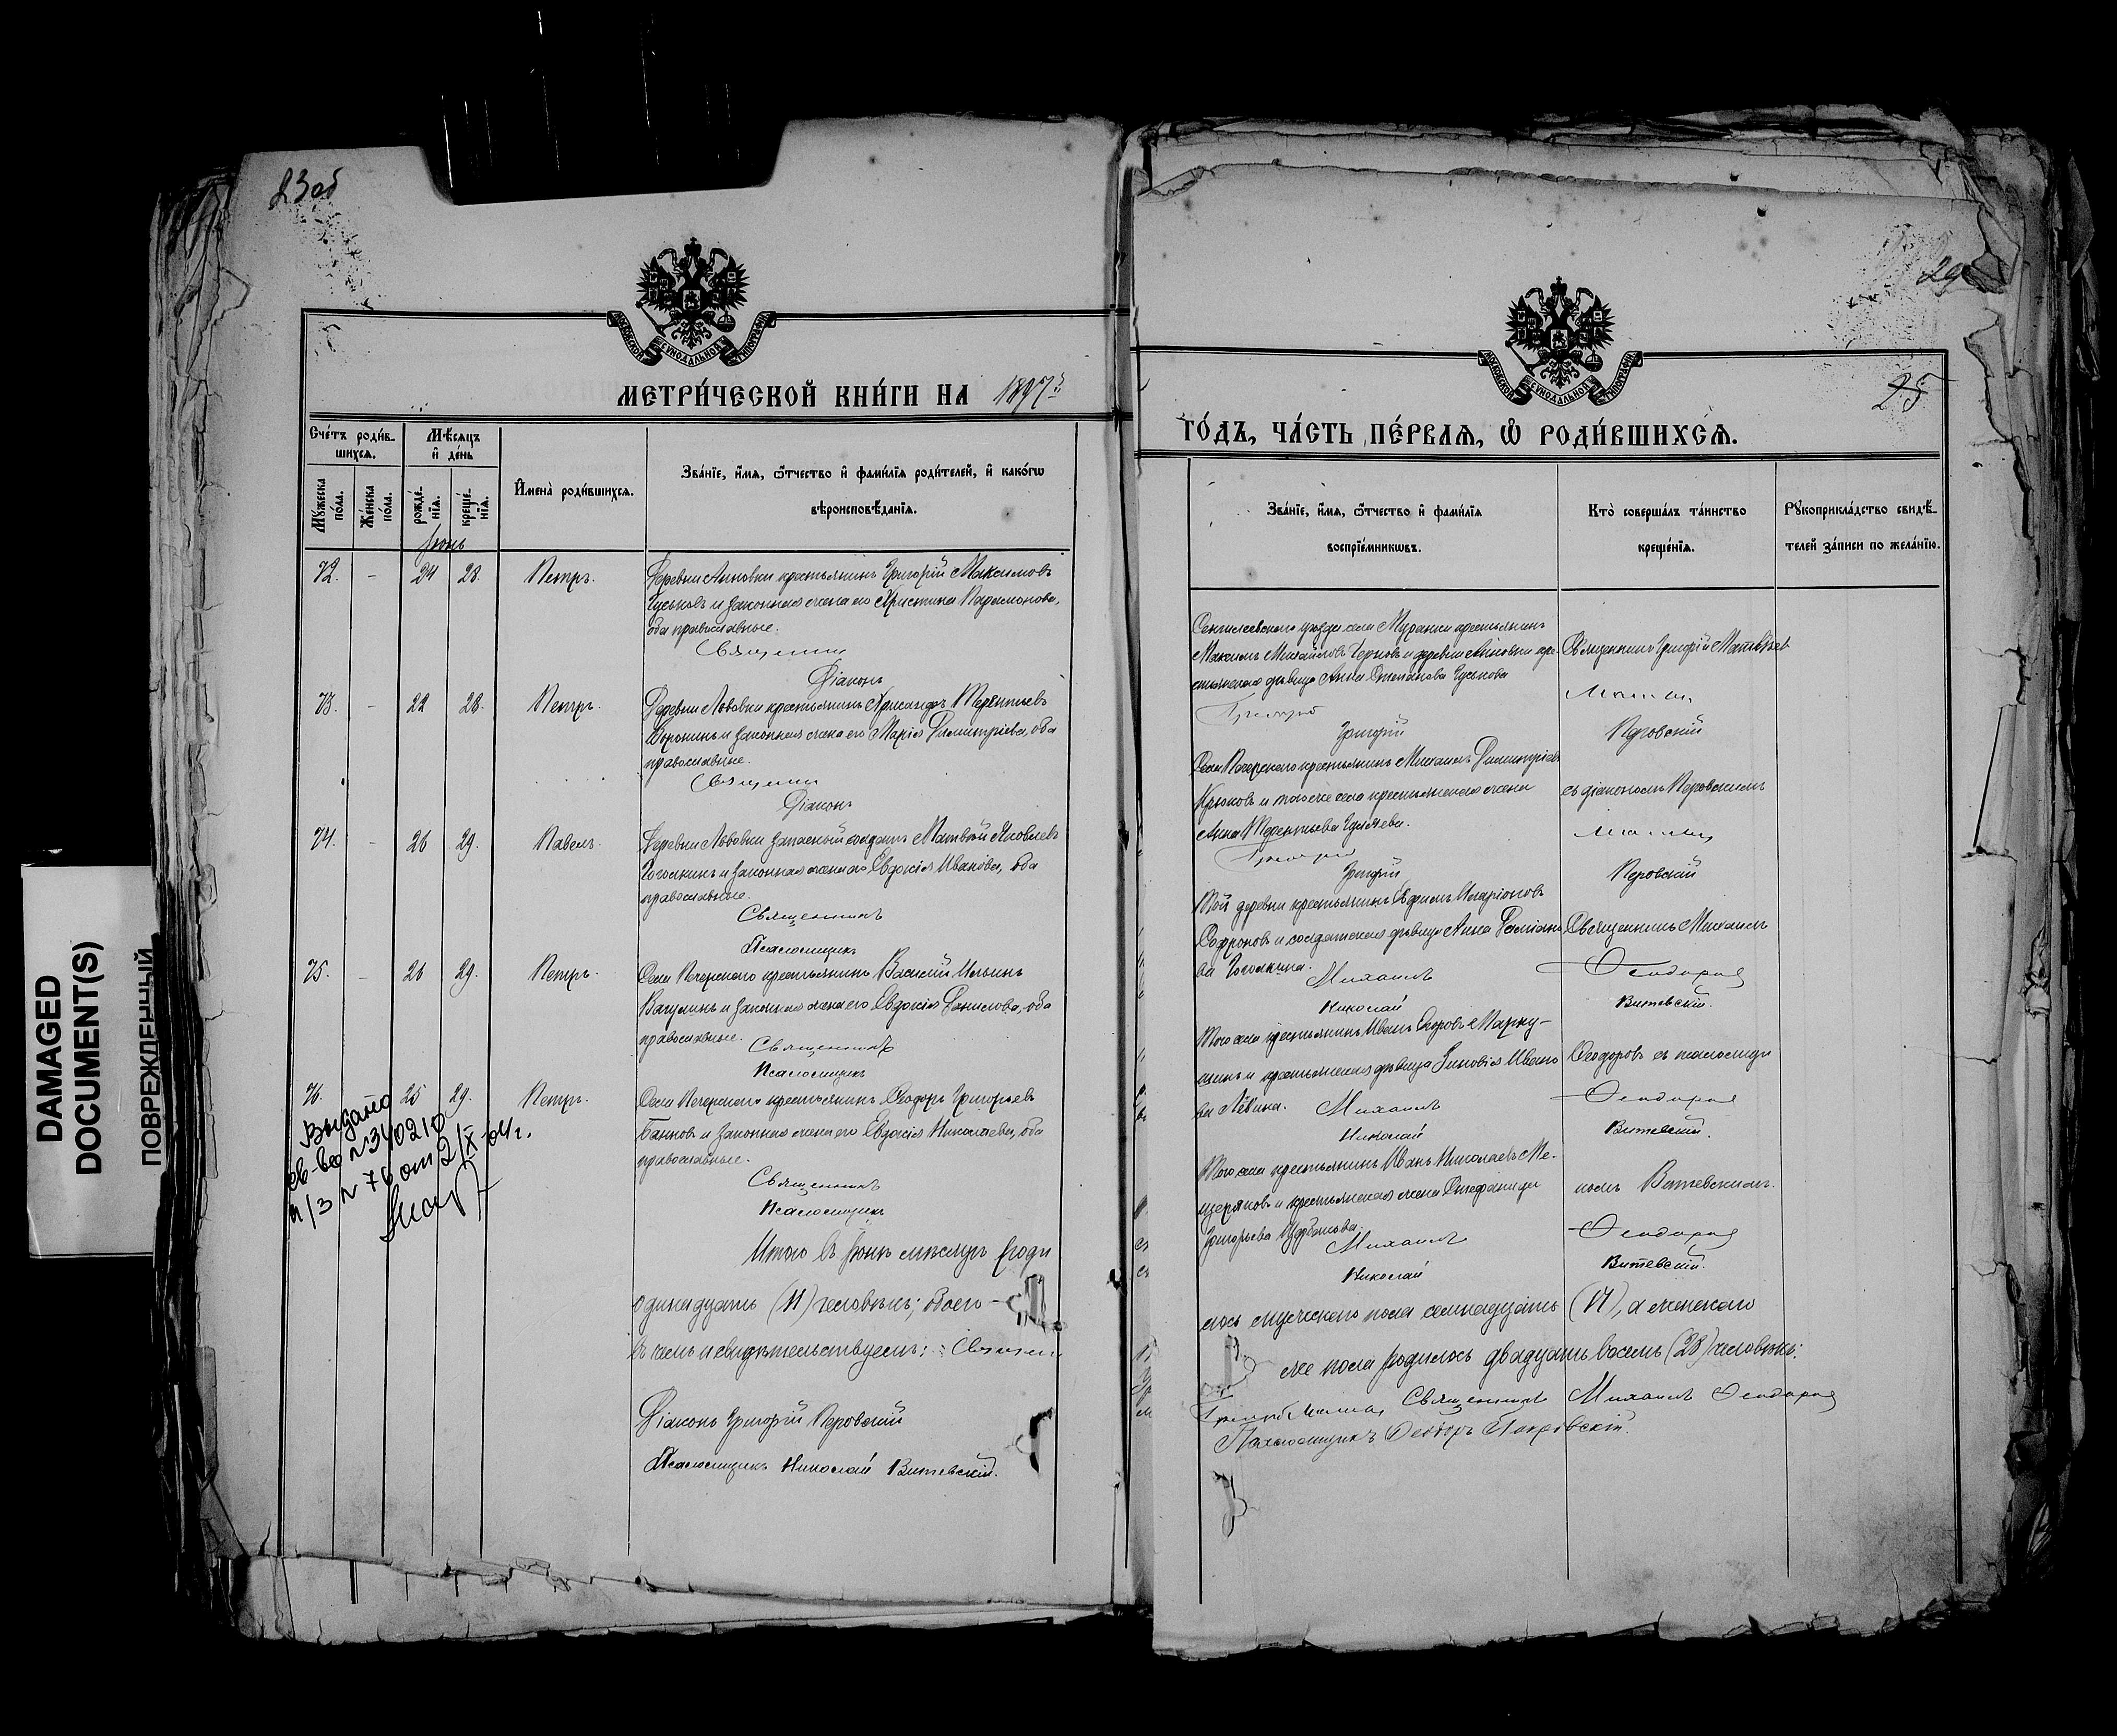 23об
МОСКОВСКОЙ СѴНОДАЛЬНОЙ ТИПОГРАФІИ
МЕТРИ́ЧЕСКОЙ КНИ́ГИ НА 1897
Сче́тъ роди́в-
шихся.
Мѣ́сяцъ
и҆ де́нь
Мꙋ́жеска
по́ла.
Же́нска
по́ла.
рожде́-
нїѧ.
креще́-
нїѧ.
И҆мена̀ роди́вшихсѧ.
Зва́нїе, и҆́мѧ, ѻ҆́тчество и҆ фами́лїѧ роди́телей, и҆ како́гѡ
вѣроисповѣ́данїѧ.
Іюнь
72. - 24 28. Петръ.
Деревни Анновки крестьянинъ Григорій Максимовъ
Гуськовъ и законная жена его Христина Парамонова,
оба православные.
Священник
Діаконъ
73. - 22 28. Петръ.
Деревни Львовки крестьянинъ Хрисанфъ Терентьевъ
Воронинъ и законная жена его Марія Димитріева, оба
православные.
Священник
Діаконъ
74. - 26 29. Павелъ.
Деревни Львовки запасный солдатъ Матвѣй Яковлевъ
Гоголкинъ и законная жена его Евдокія Иванова, оба
православные.
Священникъ
Псаломщикъ
75. - 26 29. Петръ.
Села Печерского крестьянинъ Василій Ильинъ
Вагулинъ и законная жена его Евдокія Данилова, оба
православные.
Священникъ
Псаломщикъ
76. 25 29. Петръ.
Села Печерского крестьянинъ Ѳеодоръ Григорьевъ
Банновъ и законная жена его Евдокія Николаева, оба
православные.
Священникъ
Псаломщикъ
Выдано
св-во №340210
а/з № 76 от 2/IX-04г.
Итого въ Іюнѣ мѣсяцѣ роди
одинадцать (11) человѣкъ; всего
въ чемъ и свидѣтельствуемъ: Священ
Діаконъ Григорій Перовскій
Псаломщикъ Николай Витевскій.
29
25
МОСКОВСКОЙ СѴНОДАЛЬНОЙ ТИПОГРАФІИ
ГО́ДЪ, ЧА́СТЬ ПЕ́РВАѦ, Ѡ҆ РОДИ́ВШИХСѦ.
Зва́нїе, и҆́мѧ, ѻ҆́тчество и҆ фами́лїѧ
воспрїе́мникѡвъ.
Кто̀ соверша́лъ та́инство
креще́нїѧ.
Рꙋкоприкла́дство свидѣ́-
телей за́писи по жела́нїю.
Сенгилеевского уѣзда села Муранки крестьянинъ
Максимъ Михайловъ Черновъ и деревни Анновки кре-
стьянская дѣвица Анна Степанова Гуськова
Священникъ Григорій Матвѣевъ
Григорій
Григорій
Перовскій
Села Печерского крестьянинъ Михаилъ Димитріевъ
Крюковъ и того же села крестьянская жена
Анна Терентьева Гуляева.
съ діакономъ Перовскимъ
Григорій
Григорій
Перовскій
Той деревни крестьянинъ Ефимъ Иларіоновъ
Софроновъ и солдатская дѣвица Анна Даміано
ва Гоголкина.
Священникъ Михаилъ
Михаилъ Ѳеодоровъ
Николай Витевскій.
Того села крестьянинъ Иванъ Егоровъ Марку-
шинъ и крестьянская дѣвица Зиновія Ивано
ва Лёвина.
Ѳеодоровъ съ псаломщи
Михаилъ Ѳеодоровъ
Николай Витевскій.
Того села крестьянинъ Иванъ Николаевъ Ме-
щеряковъ и крестьянская жена Стефанида
Григорьева Курбатова.
комъ Витевскимъ.
Михаилъ Ѳеодоровъ
Николай Витевскій.
лось мужескаго пола семнадцать (17), а женскаго
же пола родилось двадцать восемь (28) человѣкъ:
Священникъ Михаилъ Ѳеодоровъ
Псаломщикъ Ѳеодоръ Покровскій.
DAMAGED
DOCUMENT(S)
ПОВРЕЖДЕННЫЙ